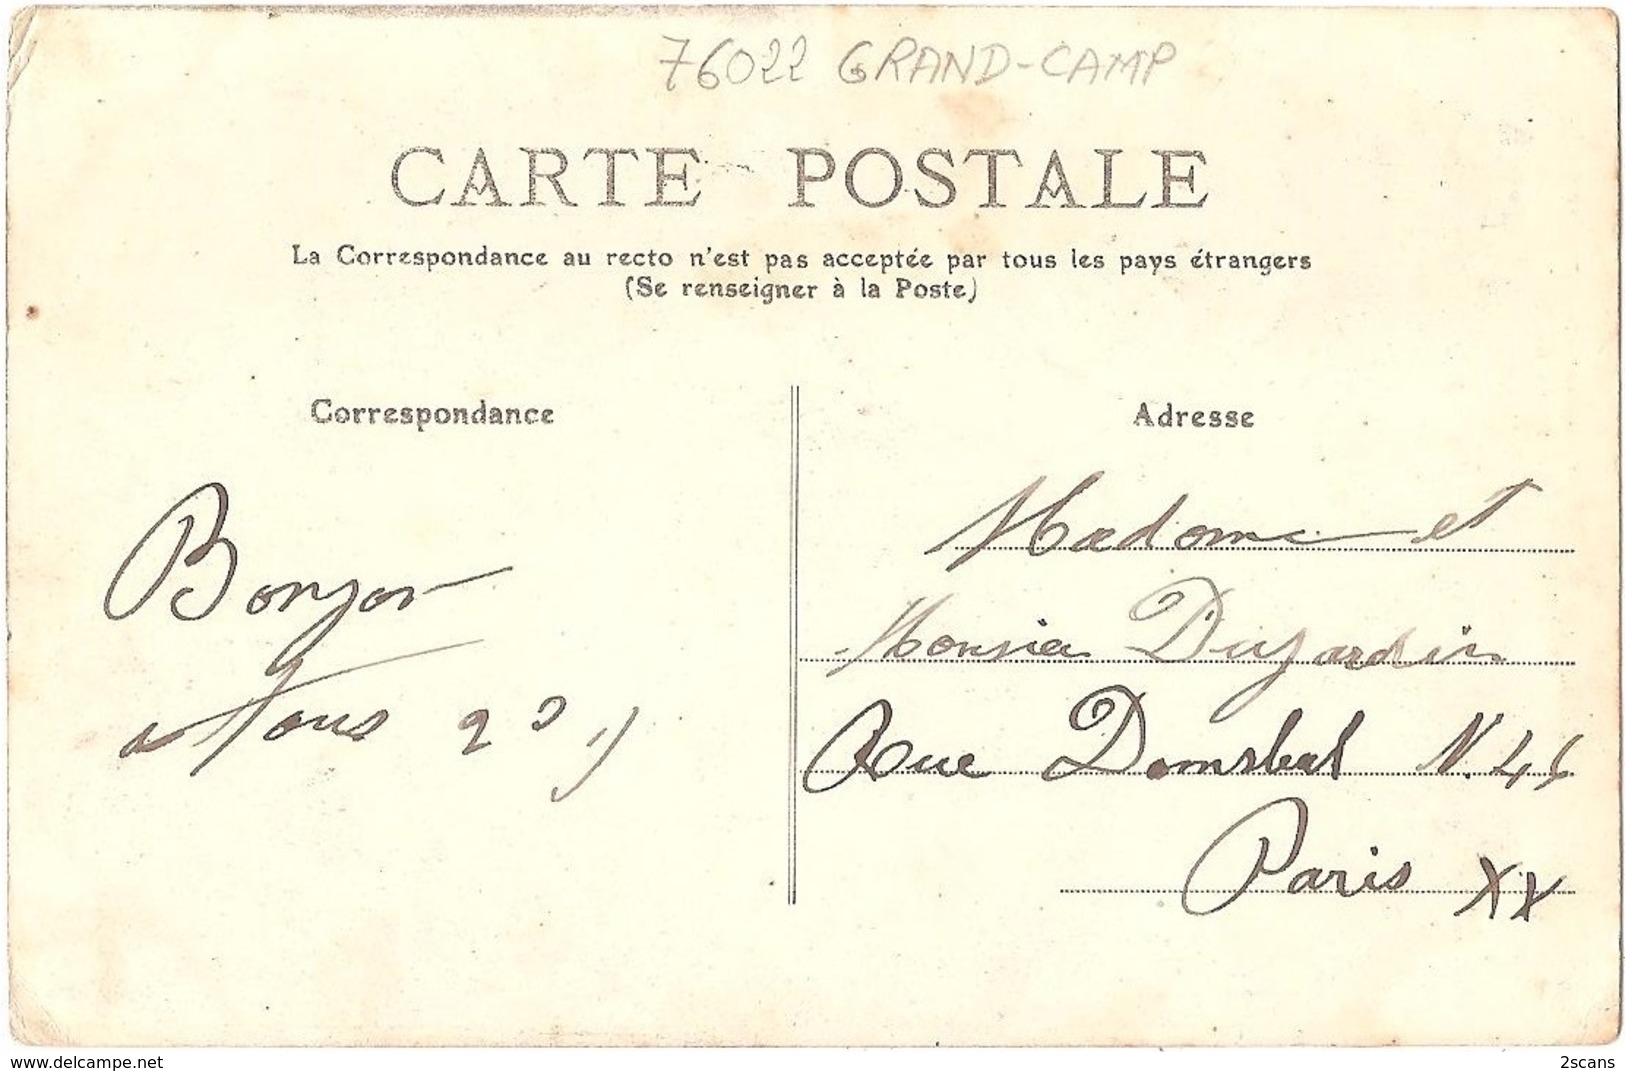 76022 GRAND-CAMP
CARTE POSTALE
La Correspondance au recto n'est pas acceptée par tous les pays étrangers
(Se renseigner à la Poste)
Correspondance
Adresse
Bonjor
a tous
Madame et
Monsieu Dujardin
Rue Domsbal N. 46
Paris XX
www.delcampe.net
2scans